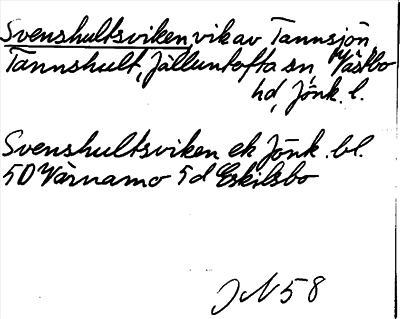 Svenshultsviken vik av Tannsjön,
Tannshult, Jälluntofta sn, Västbo
hd, Jönk. l.
Svenshultsviken ek Jönk. bl.
5D Värnamo 5d Eskilsbo
JN58